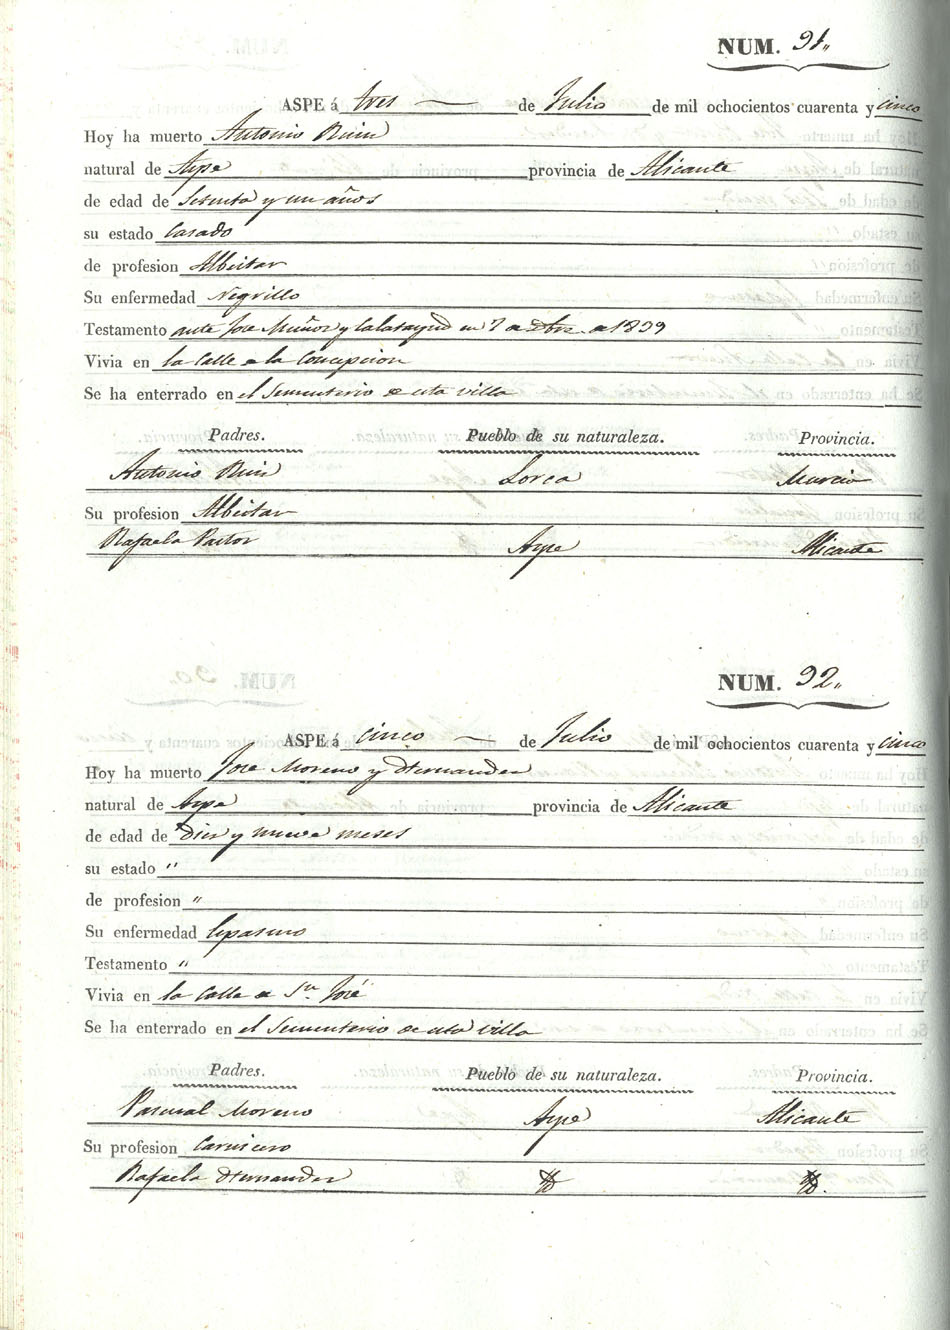 NUM. 91.,
ASPE á tres de Julio de mil ochocientos cuarenta y cinco
Hoy ha muerto Antonio
natural de Aspe provincia de Alicante
de edad de Setenta y un años
su estado Casado
de profesion Albeitar
Su enfermedad Negrillo
Testamento ante Jose Muñoz y Calatayud en 7 de de 1839
Vivia en la Calle de la Concepcion
Se ha enterrado en el Sementerio de esta villa
Padres. Pueblo de su naturaleza. Provincia.
Antonio Lorca Murcia
Su profesion Albeitar
Rafaela Pastor Aspe Alicante
NUM. 92.,
ASPE á cinco de Julio de mil ochocientos cuarenta y cinco
Hoy ha muerto Jose Moreno y Hernandez
natural de Aspe provincia de Alicante
de edad de Diez y nueve meses
su estado "
de profesion "
Su enfermedad Espasmo
Testamento "
Vivia en la Calle de Sn. José
Se ha enterrado en el Sementerio de esta villa
Padres. Pueblo de su naturaleza. Provincia.
Pascual Moreno Aspe Alicante
Su profesion Carnicero
Rafaela Hernandez